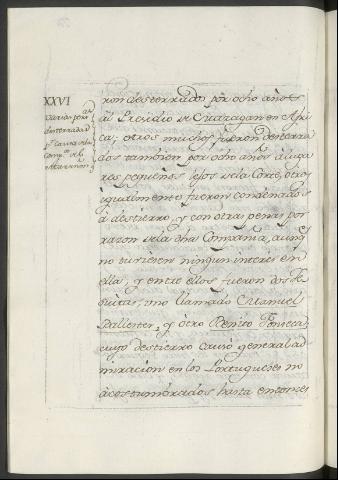 XXVI
Varias pers.as
desterradas
p.r causa de la
Comp.a del
Marañon
ron desterrados por ocho años
al Presidio de Mazagan en Afri
ca; otros muchos fueron desterra
dos tambien por ocho años a luga
res pequeños lejos de la Corte, otros
igualmente fueron condenados
à destierro, y con otras penas por
razon de la dha Compañia, aunq
no tuviesen ningun interes en
ella; y entre ellos fueron dos Je
suitas, uno llamado Manuel
Ballester, y otro Benito Fonseca,
cuyo destierro causò general ad
miracion en los Portugueses no
acostumbrados hasta entonces